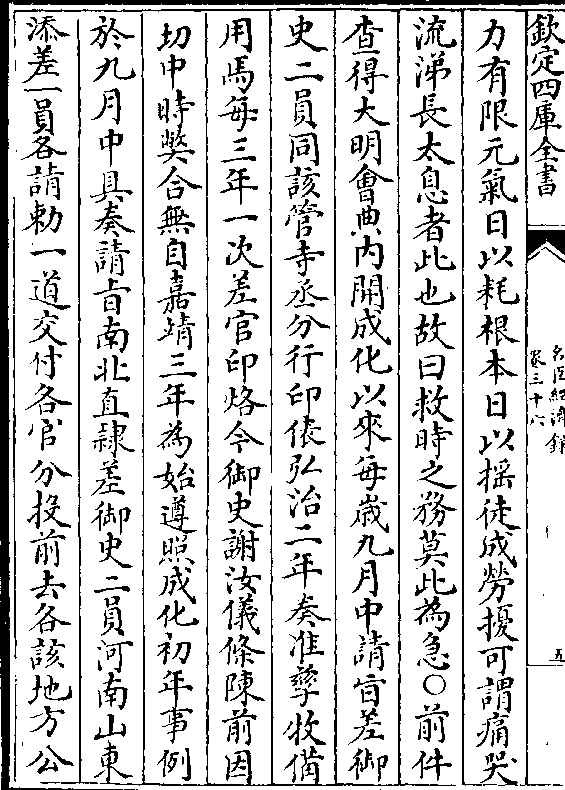 欽定四庫全書
名臣經濟錄
卷三十六
五
力有限元氣日以耗根本日以揺徒成勞擾可謂痛哭
流涕長太息者此也故曰救時之務莫此為急○前件
查得大明會典内開成化以來每歲九月中請㫖差御
史二員同該管寺丞分行印俵弘治二年奏准孳牧備
用馬每三年一次差官印烙今御史謝汝儀條陳前因
切中時弊合無自嘉靖三年為始遵照成化初年事例
於九月中具奏請㫖南北直隷差御史二員河南山東
添差一員各請勅一道交付各官分投前去各該地方公